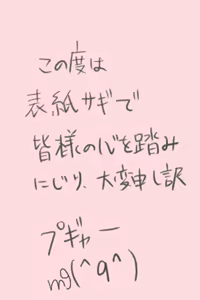 この度は
表紙サギで
皆様の心を踏み
にじり、大変申し訳
プギャー
m9(^q^)